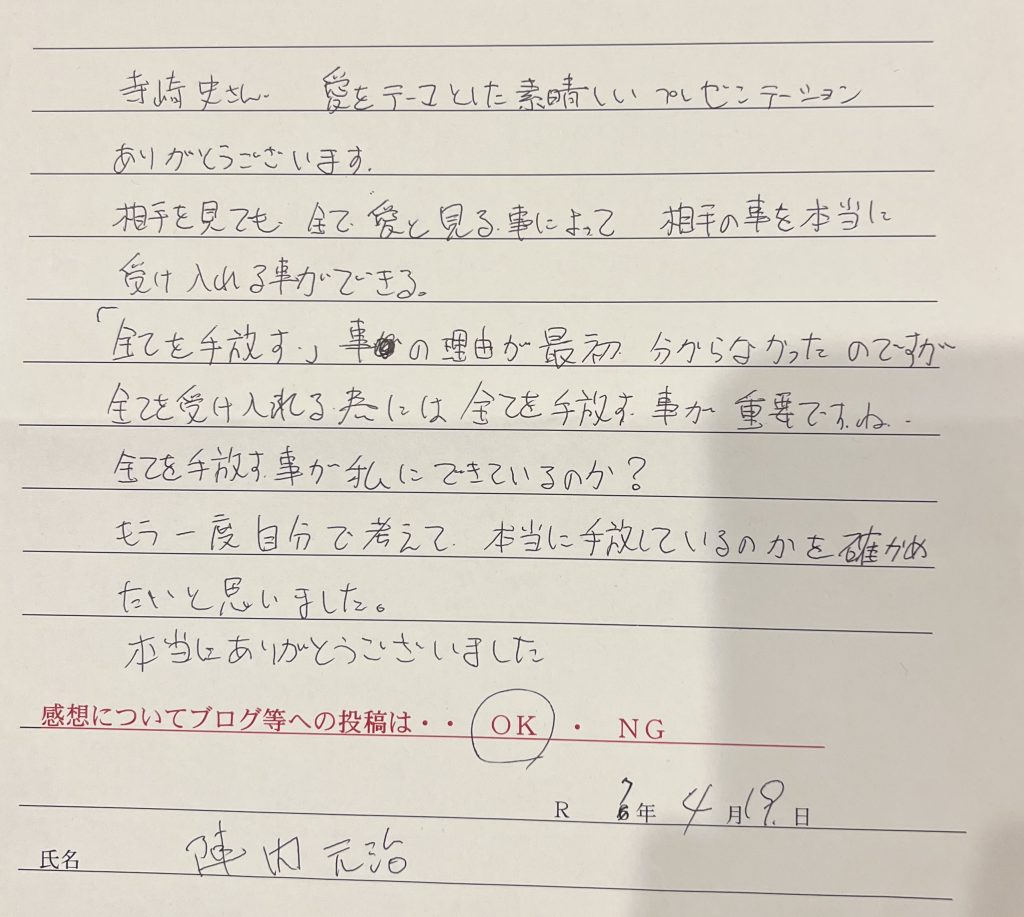 寺崎史さん. 愛をテーマとした素晴しい プレゼンテーション
ありがとうございます.
相手を見ても 全て 愛と 見る事によって 相手の事を本当に
受け入れる事ができる。
「全てを手放す」事の理由が最初 分からなかったのですが
全てを受け入れる為には 全てを手放す事が 重要ですね.
全てを手放す事が私にできているのか?
もう一度自分で考えて 本当に手放しているのかを確かめ
たいと思いました。
本当にありがとうございました
感想についてブログ等への投稿は・・ OK ・ NG
R 7年 4月19日
氏名 陣内 元治